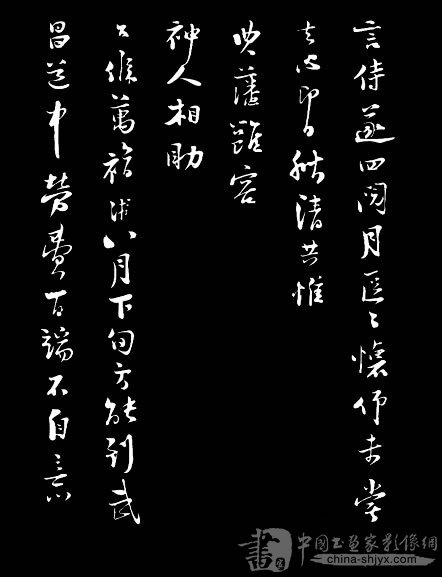 言侍遂四閱月區區懷仰未嘗
去心即日秋清共惟
典藩雝容
神人相助
台候萬福八月下旬方能到武
昌道中勞費百端不自意
中國书畫家影像網
china-shjyx.com